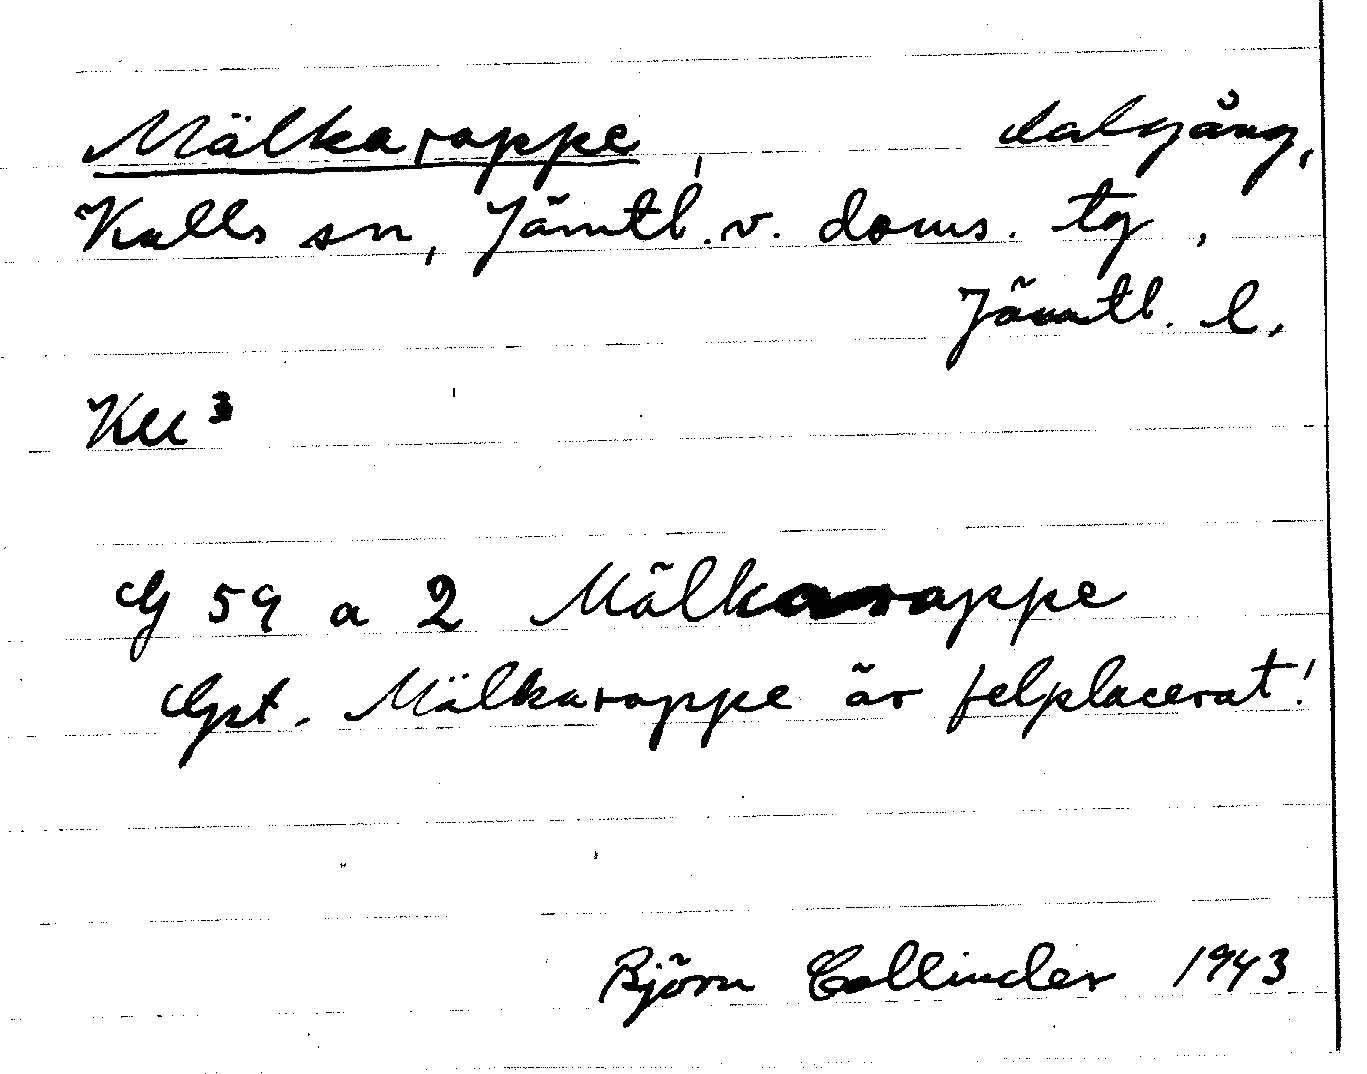 Mälkaroppe, dalgång,
Kalls sn, Jämtl. v. doms. tg,
Jämtl. l.
KU³
G 59 a 2 Mälkaroppe
Gpt. Mälkaroppe är felplacerat!
Björn Collinder 1943